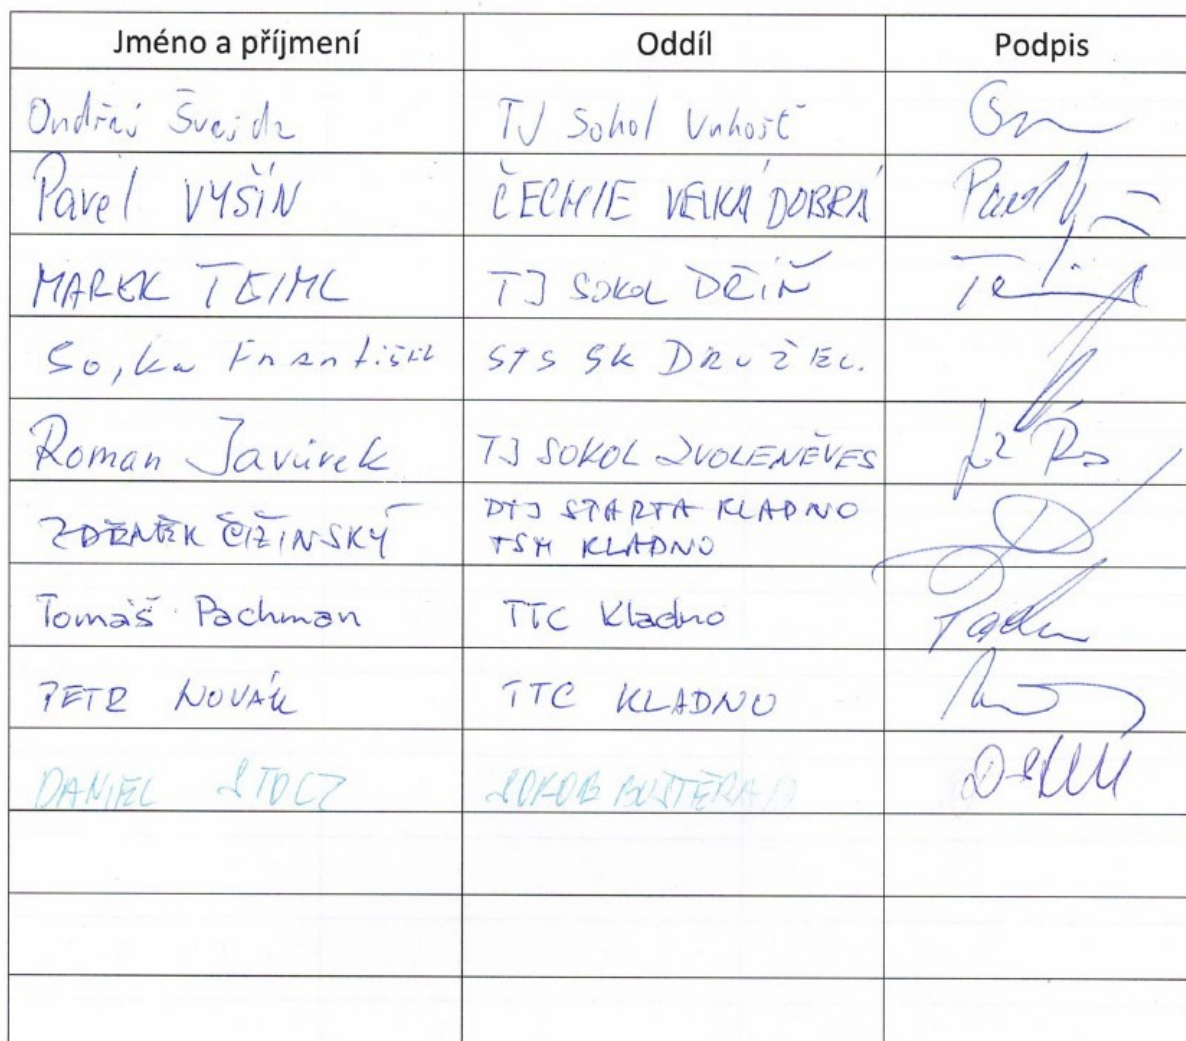 Jméno a příjmení Oddíl Podpis
Ondřej Švejda TJ Sokol Unhošť
Pavel VYŠÍN ČECHIE VELKÁ DOBRÁ
MAREK TEIML TJ SOKOL DŘÍŇ
Sojka František STS SK DRUŽEC.
Roman Javůrek TJ SOKOL ZVOLENĚVES
ZDENĚK ČIŽINSKÝ DTJ SPARTA KLADNO
TSM KLADNO
Tomáš Pachman TTC Kladno
PETR NOVÁK TTC KLADNO
DANIEL STOCZ SOKOL BUŠTĚHRAD